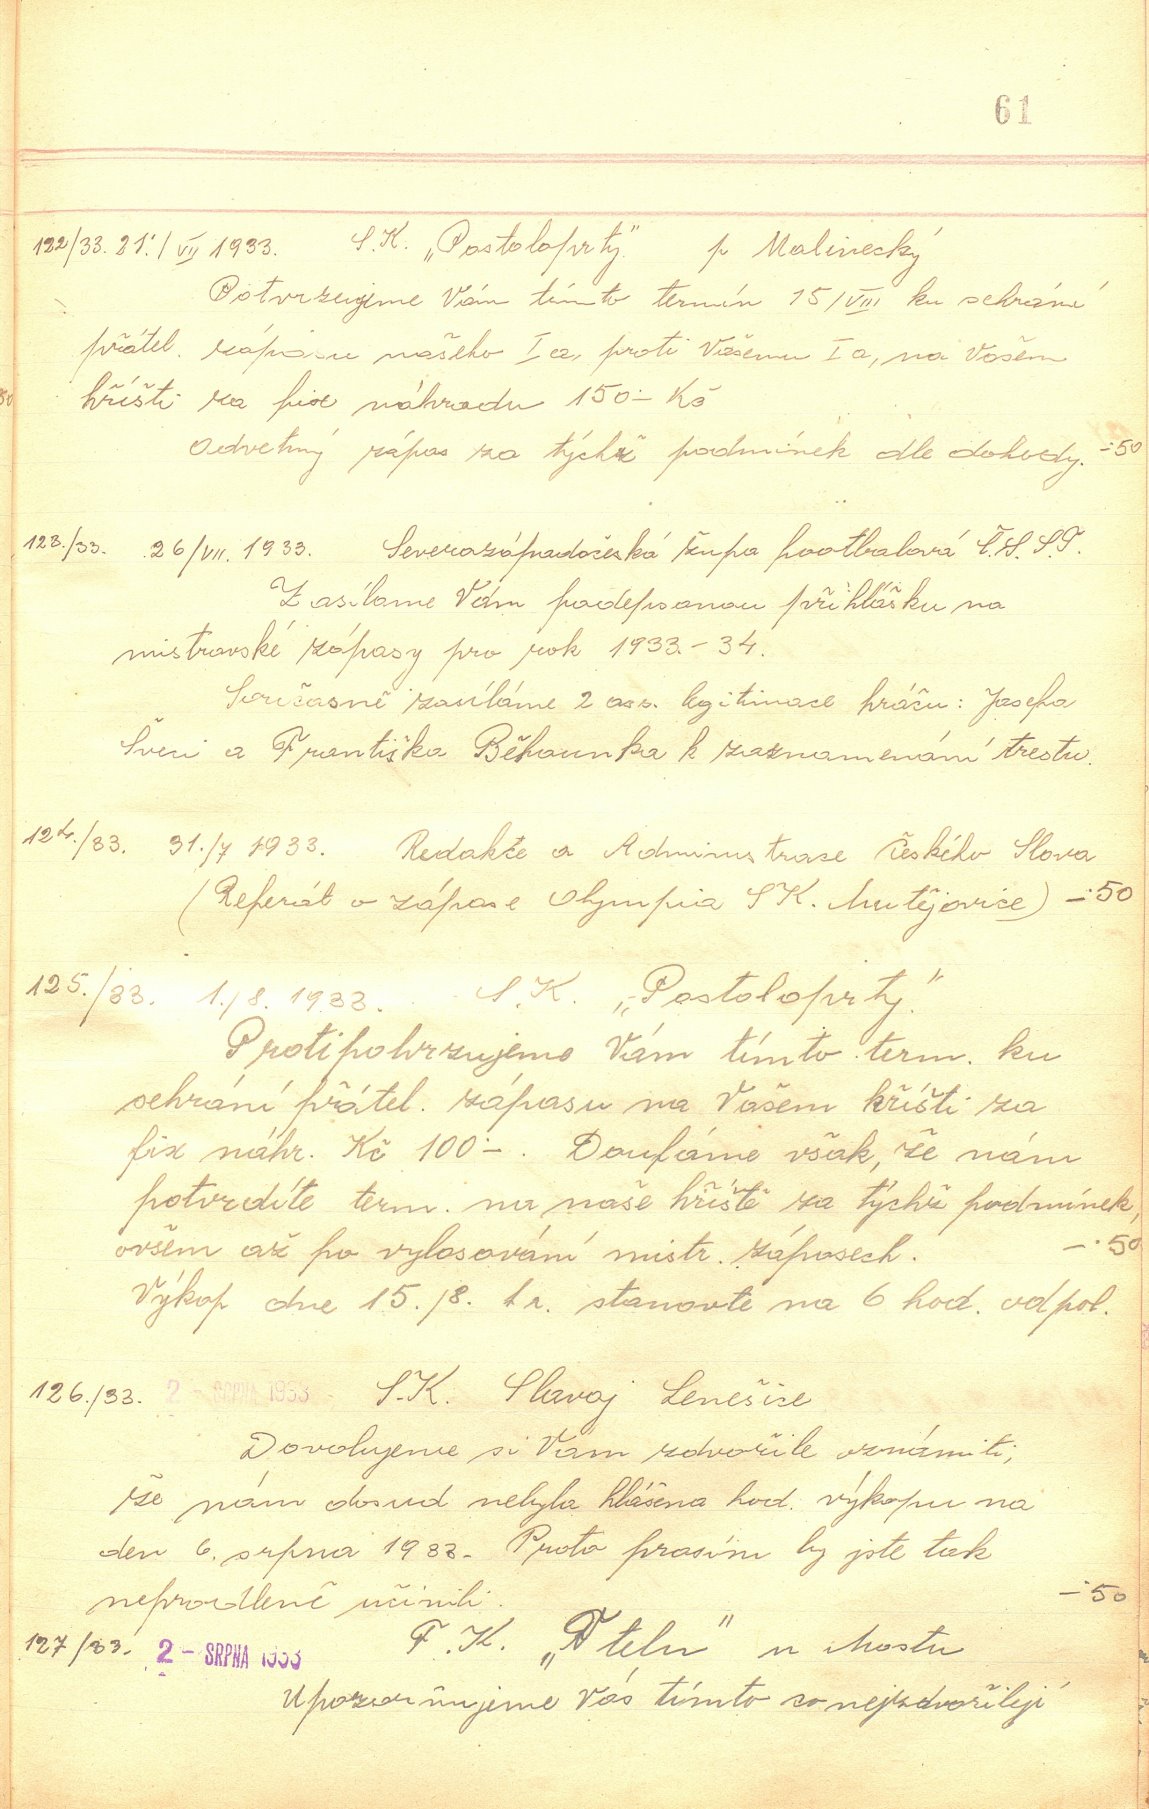 61
122/33. 21./VII 1933. S.K. „Postoloprty" p Malinecký
Potvrzujeme Vám tímto termín 15/VIII ku sehrání
přátel. zápasu našeho Ia, proti Vašemu Ia, na Vašem
hřišti za fix náhradu 150·– Kč
Odvetný zápas za týchž podmínek dle dohody. –·50
123./33. 26/VII. 1933. Severozápadočeská župa footbalová Č.S.S.F.
Zasíláme Vám podepsanou přihlášku na
mistravské zápasy pro rok 1933.–34.
Současně zasíláme 2 legitimace hráčů: Josefa
a Františka Běhounka k zaznamenání trestu.
124./33. 31./7 1933. Redakče a Administrace Českého Slova
(Referát o zápase Olympia SK. Mutějovice) –·50
125./33. 1./8. 1933. S.K. „Postoloprty."
Protipotvrzujeme Vám tímto term. ku
sehrání přátel. zápasu na Vašem hřišti za
fix náhr. Kč 100·–. Doufáme však, že nám
potvrdíte term. na naše hřiště za týchž podmínek,
ovšem až po vylosování mistr. zápasech. –·50
Výkop dne 15./8. t.r. stanovte na 6 hod. odpol.
126./33. 2 – SRPNA 1933 S.K. Slavoj Lenešice
Dovolujeme si Vám zdvořile oznámiti,
že nám dosud nebyla hlášena hod. výkopu na
den 6. srpna 1933. Proto prosím by jste tak
neprodleně učinili. –·50
127/33. 2 – SRPNA 1933 F.K. u Mostu
Upozorňujeme Vás tímto co nejzdvořileji